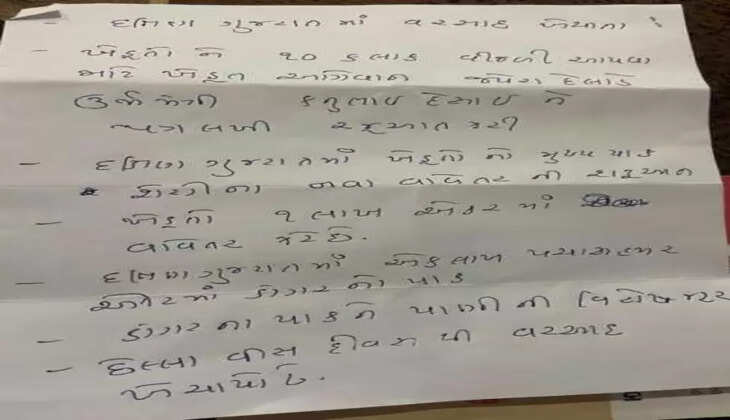 - દક્ષિણ ગુજરાત માં વરસાદ ખેંચાતા
- ખેડૂતો ને ૧૦ કલાક વીજળી આપવા
માટે ખેડૂત આગેવાન જયેશ દેલાડે
ઉર્જામંત્રી કનુભાઈ દેસાઈ ને
પત્ર લખી રજૂઆત કરી
- દક્ષિણ ગુજરાતમાં ખેડૂતો નો મુખ્ય પાક
શેરડીના નવા વાવેતર ની શરૂઆત
- ખેડૂતો ૧ લાખ એકર માં
વાવેતર કરે છે.
- દક્ષિણ ગુજરાતમાં એક લાખ પચાસ હજાર
એકરમાં ડાંગર નો પાક
- ડાંગર ના પાકને પાણી ની વિશેષ જરૂર
- છેલ્લા વીસ દિવસ થી વરસાદ
ખેંચાયો છે.